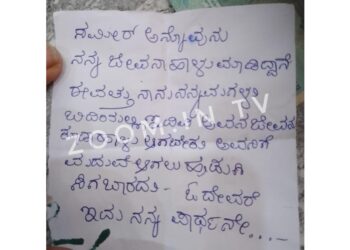 ಸಮೀರ್ ಅನ್ನೋವುನು
ನನ್ನ ಜೀವನಾಹಾಳು ಮಾಡಿದ್ದಾನೆ
ಈವತ್ತು ನಾನು ನನ್ನ ಮಗಳು
ಬಿದಿಯಲ್ಲಿ ಅವನ ಜೀವನ
ಹಾಳು ಆಗಬೇಕು ಅವನಿಗೆ
ಮದುವೆ ಆಗಲು ಹುಡುಗಿ
ಸಿಗಬಾರದು - ಓ ದೇವರೆ
ಇದು ನನ್ನ ಪಾರ್ಥನೇ...-
ZOOM.IN TV